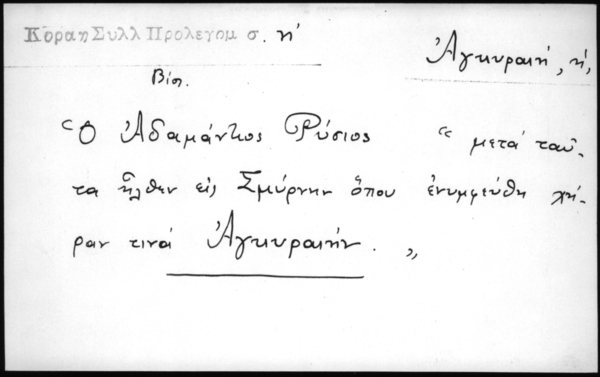 Κοραη Συλλ Προλεγομ σ. η'
Ἀγκυρανή, ἡ,
Βίος.
Ὁ Ἀδαμάντιος Ῥύσιος “ μετά ταῦ-
τα ἦλθεν εἰς Σμύρνην ὅπου ἐνυμφεύθη χή-
ραν τινά Ἀγκυρανήν. „